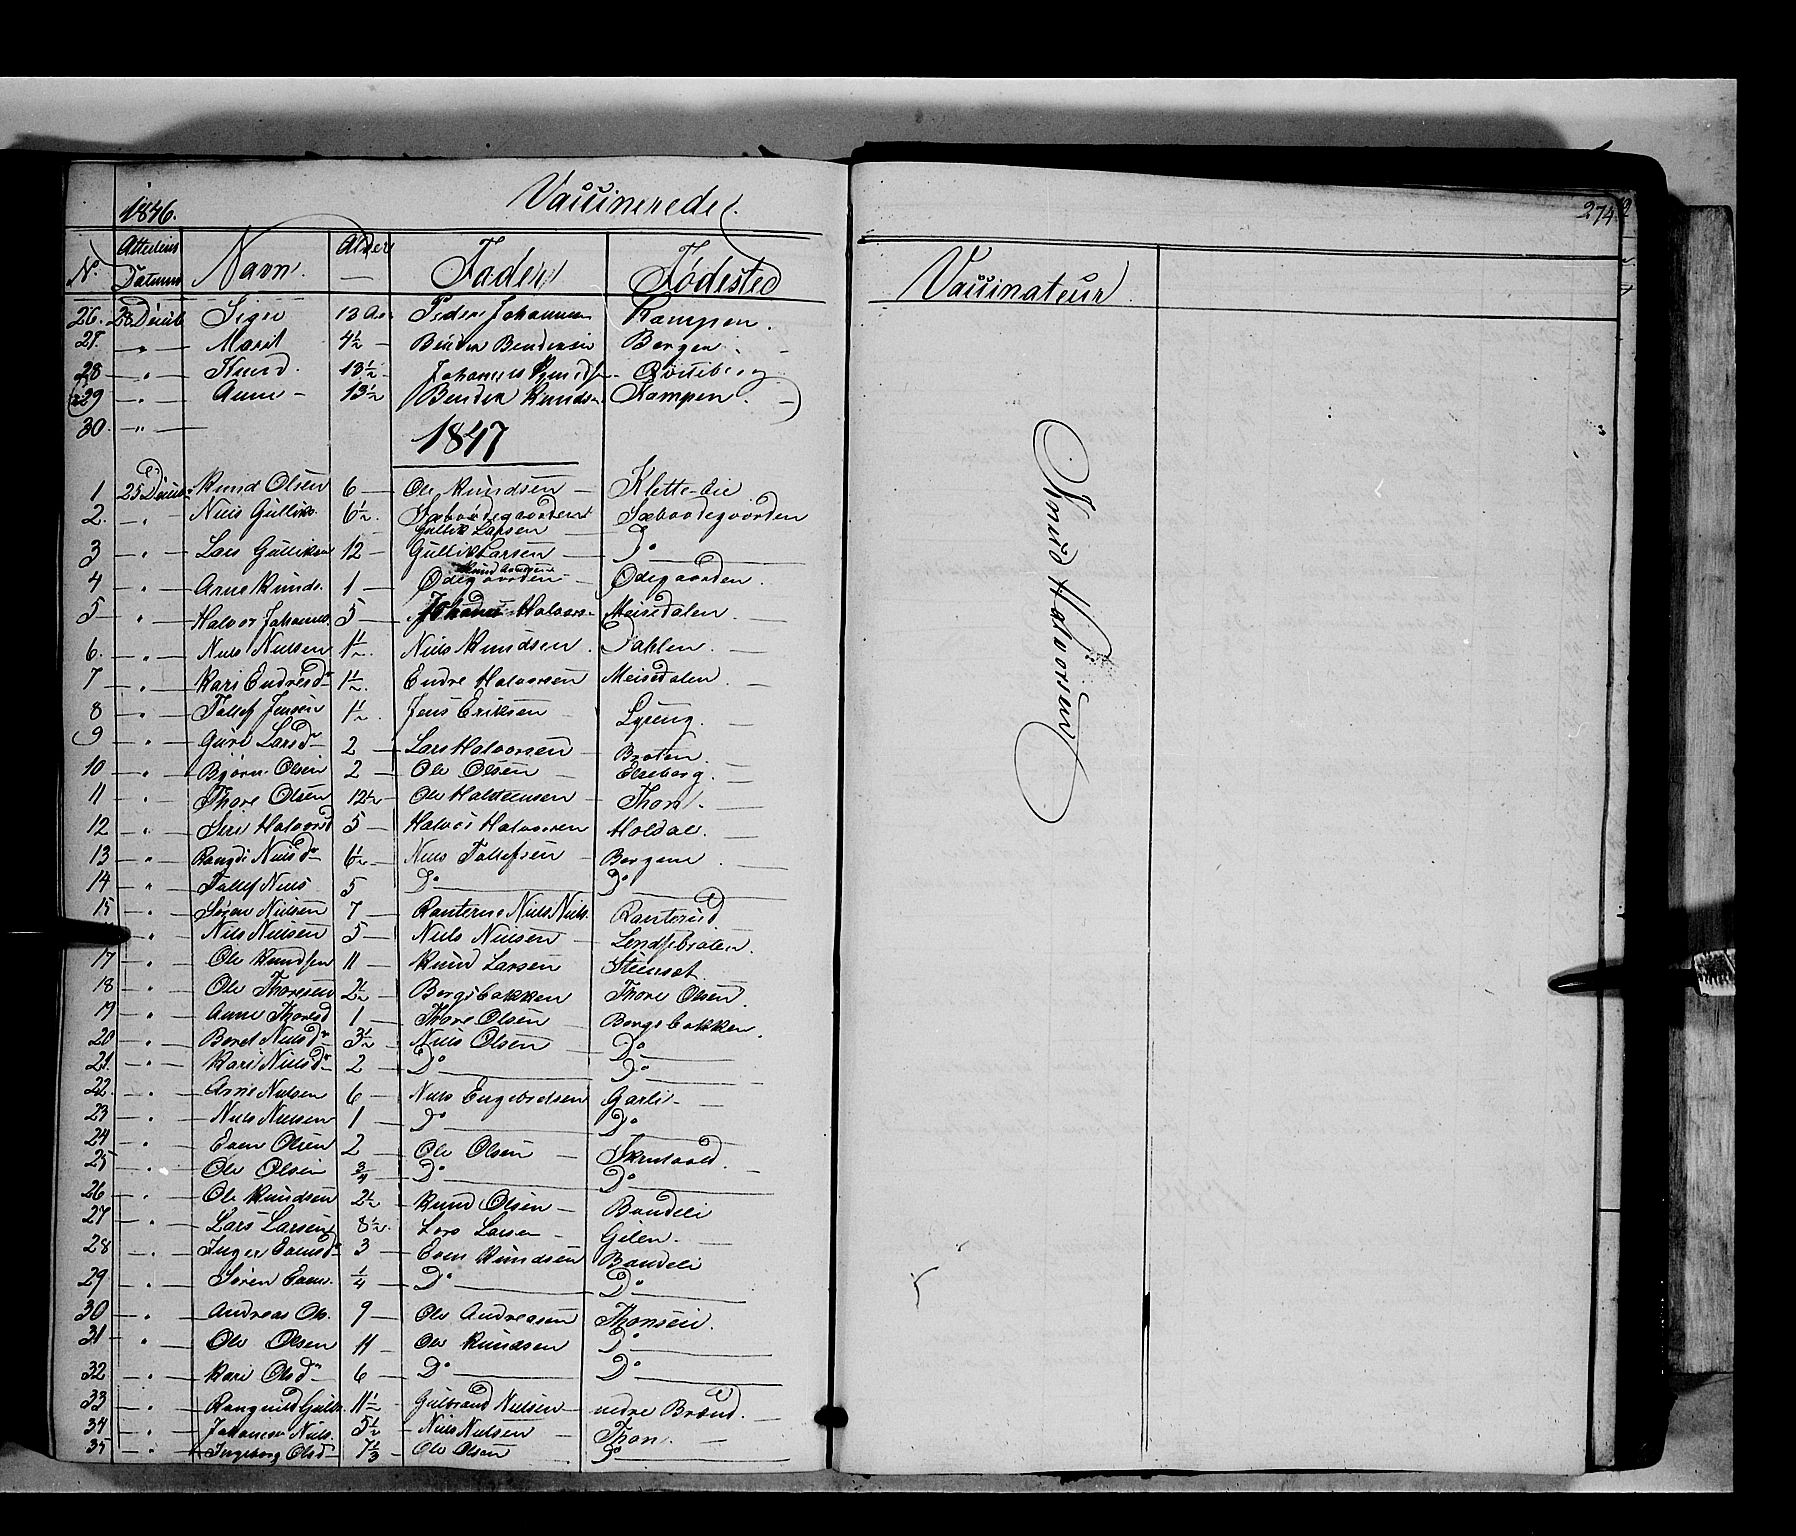 1846. Vaccinerede
274
No. Attestens Datum Navn. Alder Fader Fødested
Vaccinateur
26. 28 Decbr Siger 13 Aar Peder Johannesen Kampen.
27. " Marit 4½ Bendix Bendixsen Bergen.
28 " Knud. 13½ Johannes Knudsen
29 " Anne 13½ Bendix Knudsen Kampen.
30. "
1847
1 25 Decbr: Knud Olsen 6 Ole Knudsen Klette-eie
2. " Niels Gulliks. 6½. Sæbodegaarden Sæbodegaarden
Gullik Larsen
3 " Lars Gulliksen 12 Gullik Larsen Do
Knud Arnesen
4 " Arne Knuds. 1 Ødegaarden Ødegaarden.
5 " Halvor Johannes. 5 Johannes Halvors. Meisedalen.
6. " Niels Nielsen 1½. Niels Knudsen. Dahlen.
7 " Kari Endresdr 1½. Endre Halvorsen Meisedalen.
8 " Tollef Jensen 1½. Jens Eriksen Lyseng.
9 " Guri Larsdr 2 Lars Halvorsen Braten.
10 " Bjørn Olsen 2 Ole Olsen Elseberg.
11 " Thore Olsen 12½ Ole Halsteensen Thon.
12 " Siri Halvorsd 5 Halvor Halvorsen Moldal.
13 " Rangdi Nielsdr 6½ Niels Tollefsen Bergene.
14 " Tollef Niels 5 Do Do
15 " Søren Nielsen 7 Ranterud Niels Niels. Ranterud
" Nils Nielsen 5 Niels Nielsen Lendsebraten.
17 " Ole Knudsen 11 Knud Larsen Steenset.
18 " Ole Thoresen 2½ Bergsbakken Thore Olsen.
19 " Anne Thoresd 1 Thore Olsen Bergsbakken.
20 " Beret Nielsdr 3½ Niels Olsen Do
21. " Kari Nielsdr 2 Do Do
22. " Arne Nielsen 6 Niels Engebretsen Garli
23 " Niels Nielsen 1 Do Do
24 " Even Olsen 2 Ole Olsen
25 " Ole Olsen ¾ Do Do
26 " Ole Knudsen 2½ Knud Olsen Bandeli
27 " Lars Larsen 8½. Lars Larsen Gilen.
28 " Inger Evensdr 3 Even Knudsen Bandeli
29 " Søren Evens. ¼ Do Do
30 " Andreas Ols. 9 Ole Andreasen Thonseie.
31 " Ole Olsen 11 Ole Knudsen Do
32 " Kari Olsdr 6 Do Do
33 " Rangnild Gulbr. 11½ Gulbrand Nielsen nedre Brend.
34 " Johannes Niels. 5½ Niels Nielsen Thon.
35 " Ingeborg Olsdr 7⅓ Ole Olsen Do
Knud Halvorsen